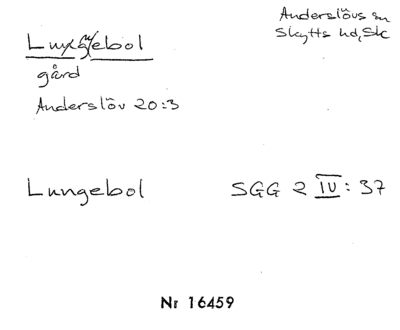 Anderslövs sn
Skytts hd, Sk
Lungebol
gård
Anderslöv 20:3
Lungebol SGG 2 IV: 37
Nr 16459